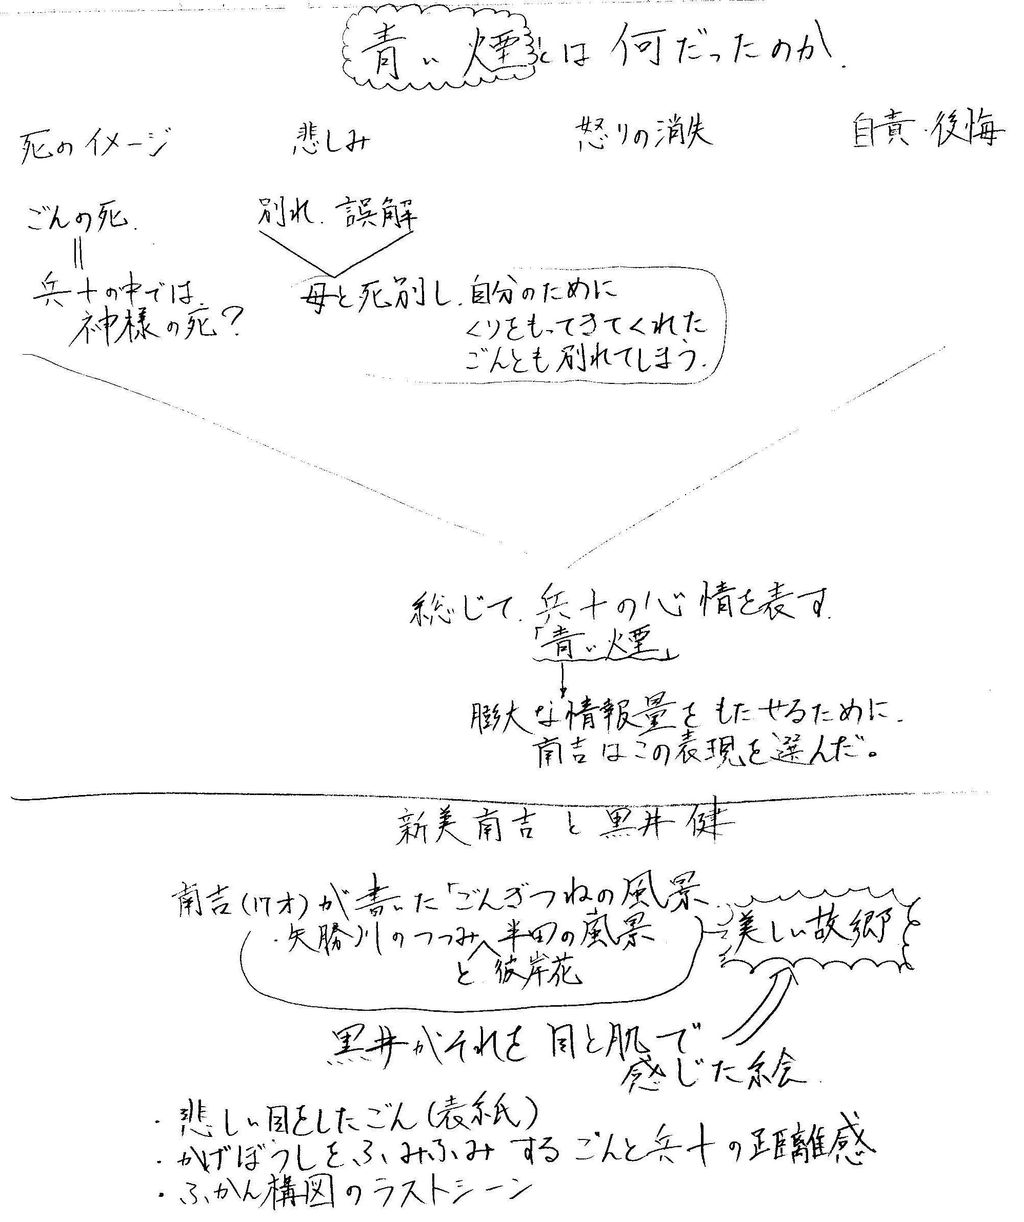 青い煙とは何だったのか.
死のイメージ
悲しみ
怒りの消失
自責・後悔
ごんの死.
||
兵十の中では、
神様の死?
別れ. 誤解
母と死別し、自分のために
くりをもってきてくれた
ごんとも別れてしまう.
総じて、兵十の心情を表す
「青い煙」
↓
膨大な情報量をもたせるために、
南吉はこの表現を選んだ。
新美南吉と黒井健
南吉(17才)が書いた「ごんぎつねの風景
・矢勝川のつつみ 半田の風景
と彼岸花
美しい故郷
黒井がそれを目と肌で
感じた絵.
・悲しい目をしたごん(表紙)
・かげぼうしをふみふみするごんと兵十の距離感
・ふかん構図のラストシーン